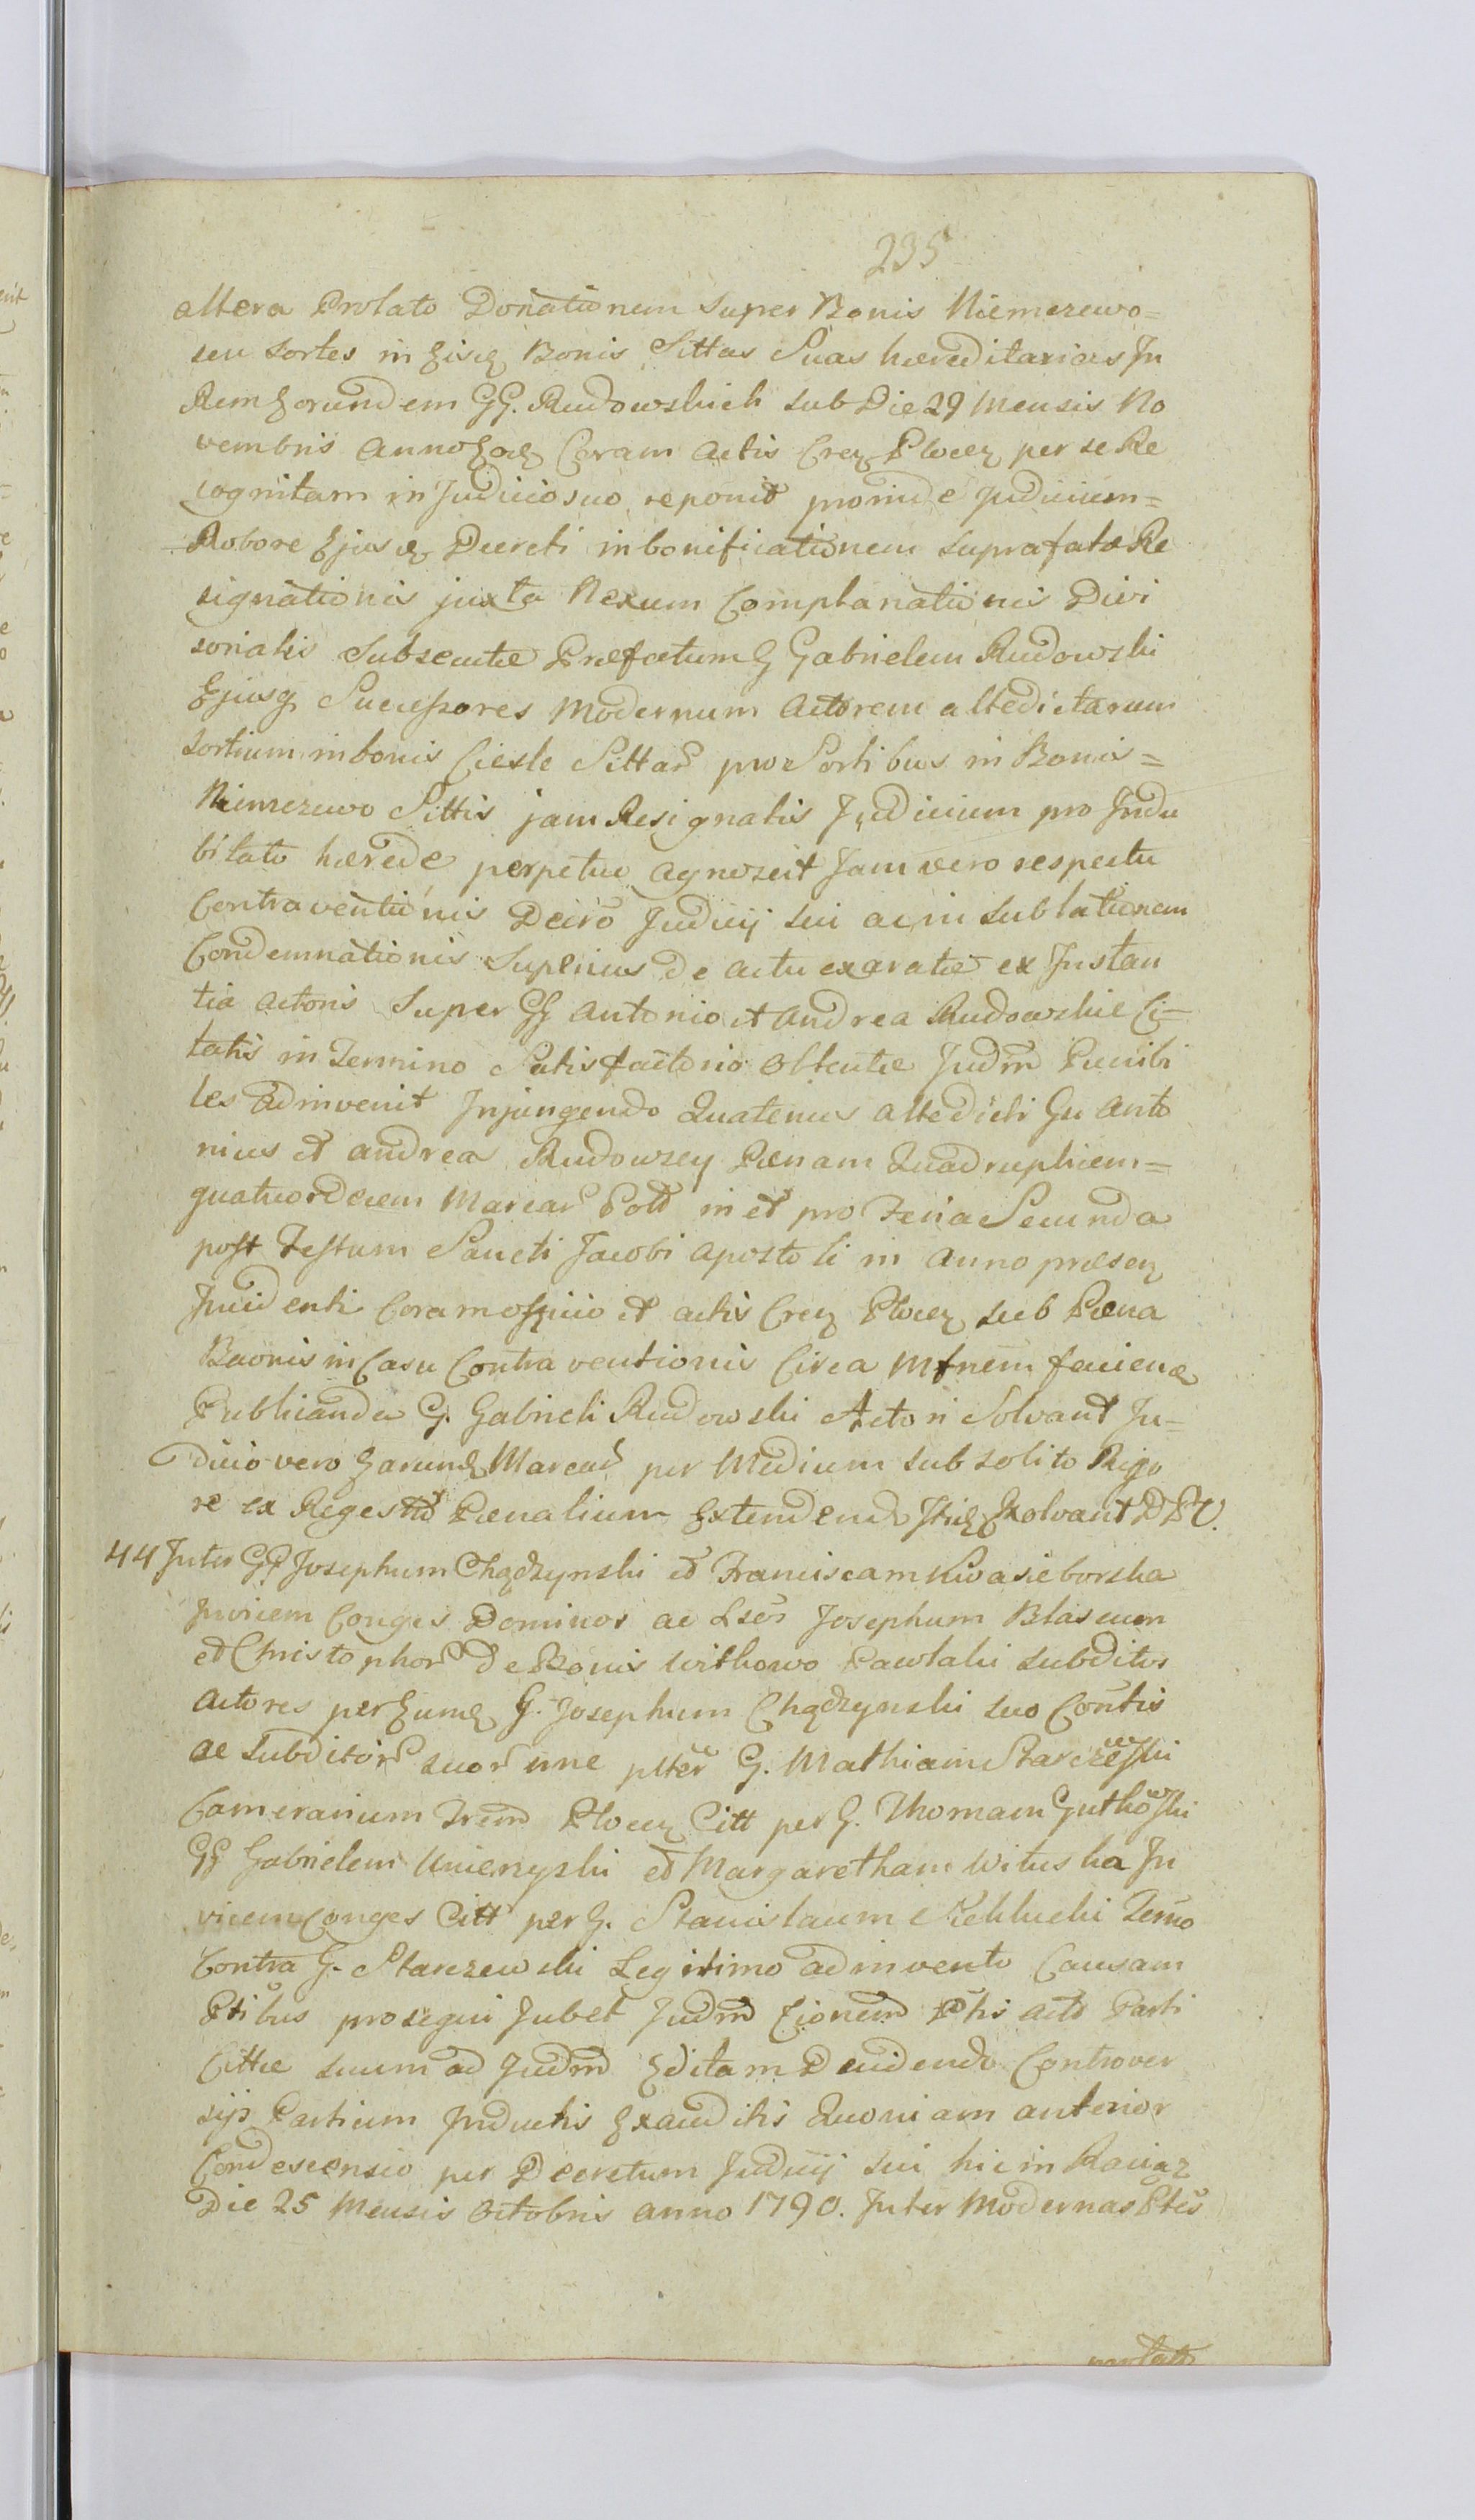 235
altera Prolato Donationem super Bonis Niemczewo=
seu Sortes in Eisdem Bonis Sittas Suas hæreditarias In
Rem Eorundem GG. Rudowskich sub Die 29 Mensis No
vembris Anno Eod Coram Actis Cren Plocen per se Re
cognitam in Judicio suo reponit proinde Judicium=
Robore Ejusd Decreti in bonificationem suprafatæ Re
signationis juxta Nexum Complanationis Divi
sorialis Subsecutæ Præfatum G Gabrielem Rudowski
Ejusq Successores Modernum Actorem altedictarum
Sortium in bonis Ciesle Sittar pro Sortibus in Bonis=
Niemczewo Sittis jam Resignatis Judicium pro Indu
bitato hærede perpetuo agnoscit Jam vero respectu
Contraventionis Decro Judicij sui ac in sublationem
Condemnationis Superius de actu exaratæ ex Instan
tia Actoris Super GG Antonio et Andrea Rudowskie Ci-
tatis in Termino Satisfactorio Obtentæ Judm Punibi
les adinvenit Injungendo Quatenus altedicti Gsi Anto
nius et Andrea Rudowscy Pœnam Quadruplicem=
quatuordecem Marcar Poll in et pro Feria Secunda
post Festum Sancti Jacobi Apostoli in Anno præsen
Incidenti Coram Officio et actis Cren Plocen sub Pœna
Baonis in Casu Contraventionis Circa Mtnem faciend
Publicanda G. Gabrieli Rudowski Actori Solvant Ju-
dicio vero Earund Marcar per Medium sub solito Rigo
re ex Regestro Pœnalium Extendend Itid Exolvant DPV.
44 Inter GG Josephum Chądzynski et Franciscam Kwasieborska
Invicem Conges Dominos ac Lsos Josephum Blaseum
et Christophor de Bonis Witkowo Pawlaki subditos
Actores per Eumd G. Josephum Chądzynski suo Contis
ac subditor suor nne plter G. Mathiam Starczewski
Camerarium Trem Plocen Citt per G. Thomam Gutkowski
GG Gabrielem Unierzyski et Margaretham Wituska In
vicem Conges Citt per G. Stanislaum Kelchicki Termo
Contra G. Starczewski Legitimo adinvento Causam
Ptibus prosequi Jubet Judm Cionem Phi acto Parti
Cittæ suum ad Judm Editam Decidendo Controver
sijs Partium Inductis Exauditis Quoniam anterior
Condescensio per Decretum Judicij sui hic in Raciąz
Die 25 Mensis Octobris anno 1790. Inter Modernas Ptes